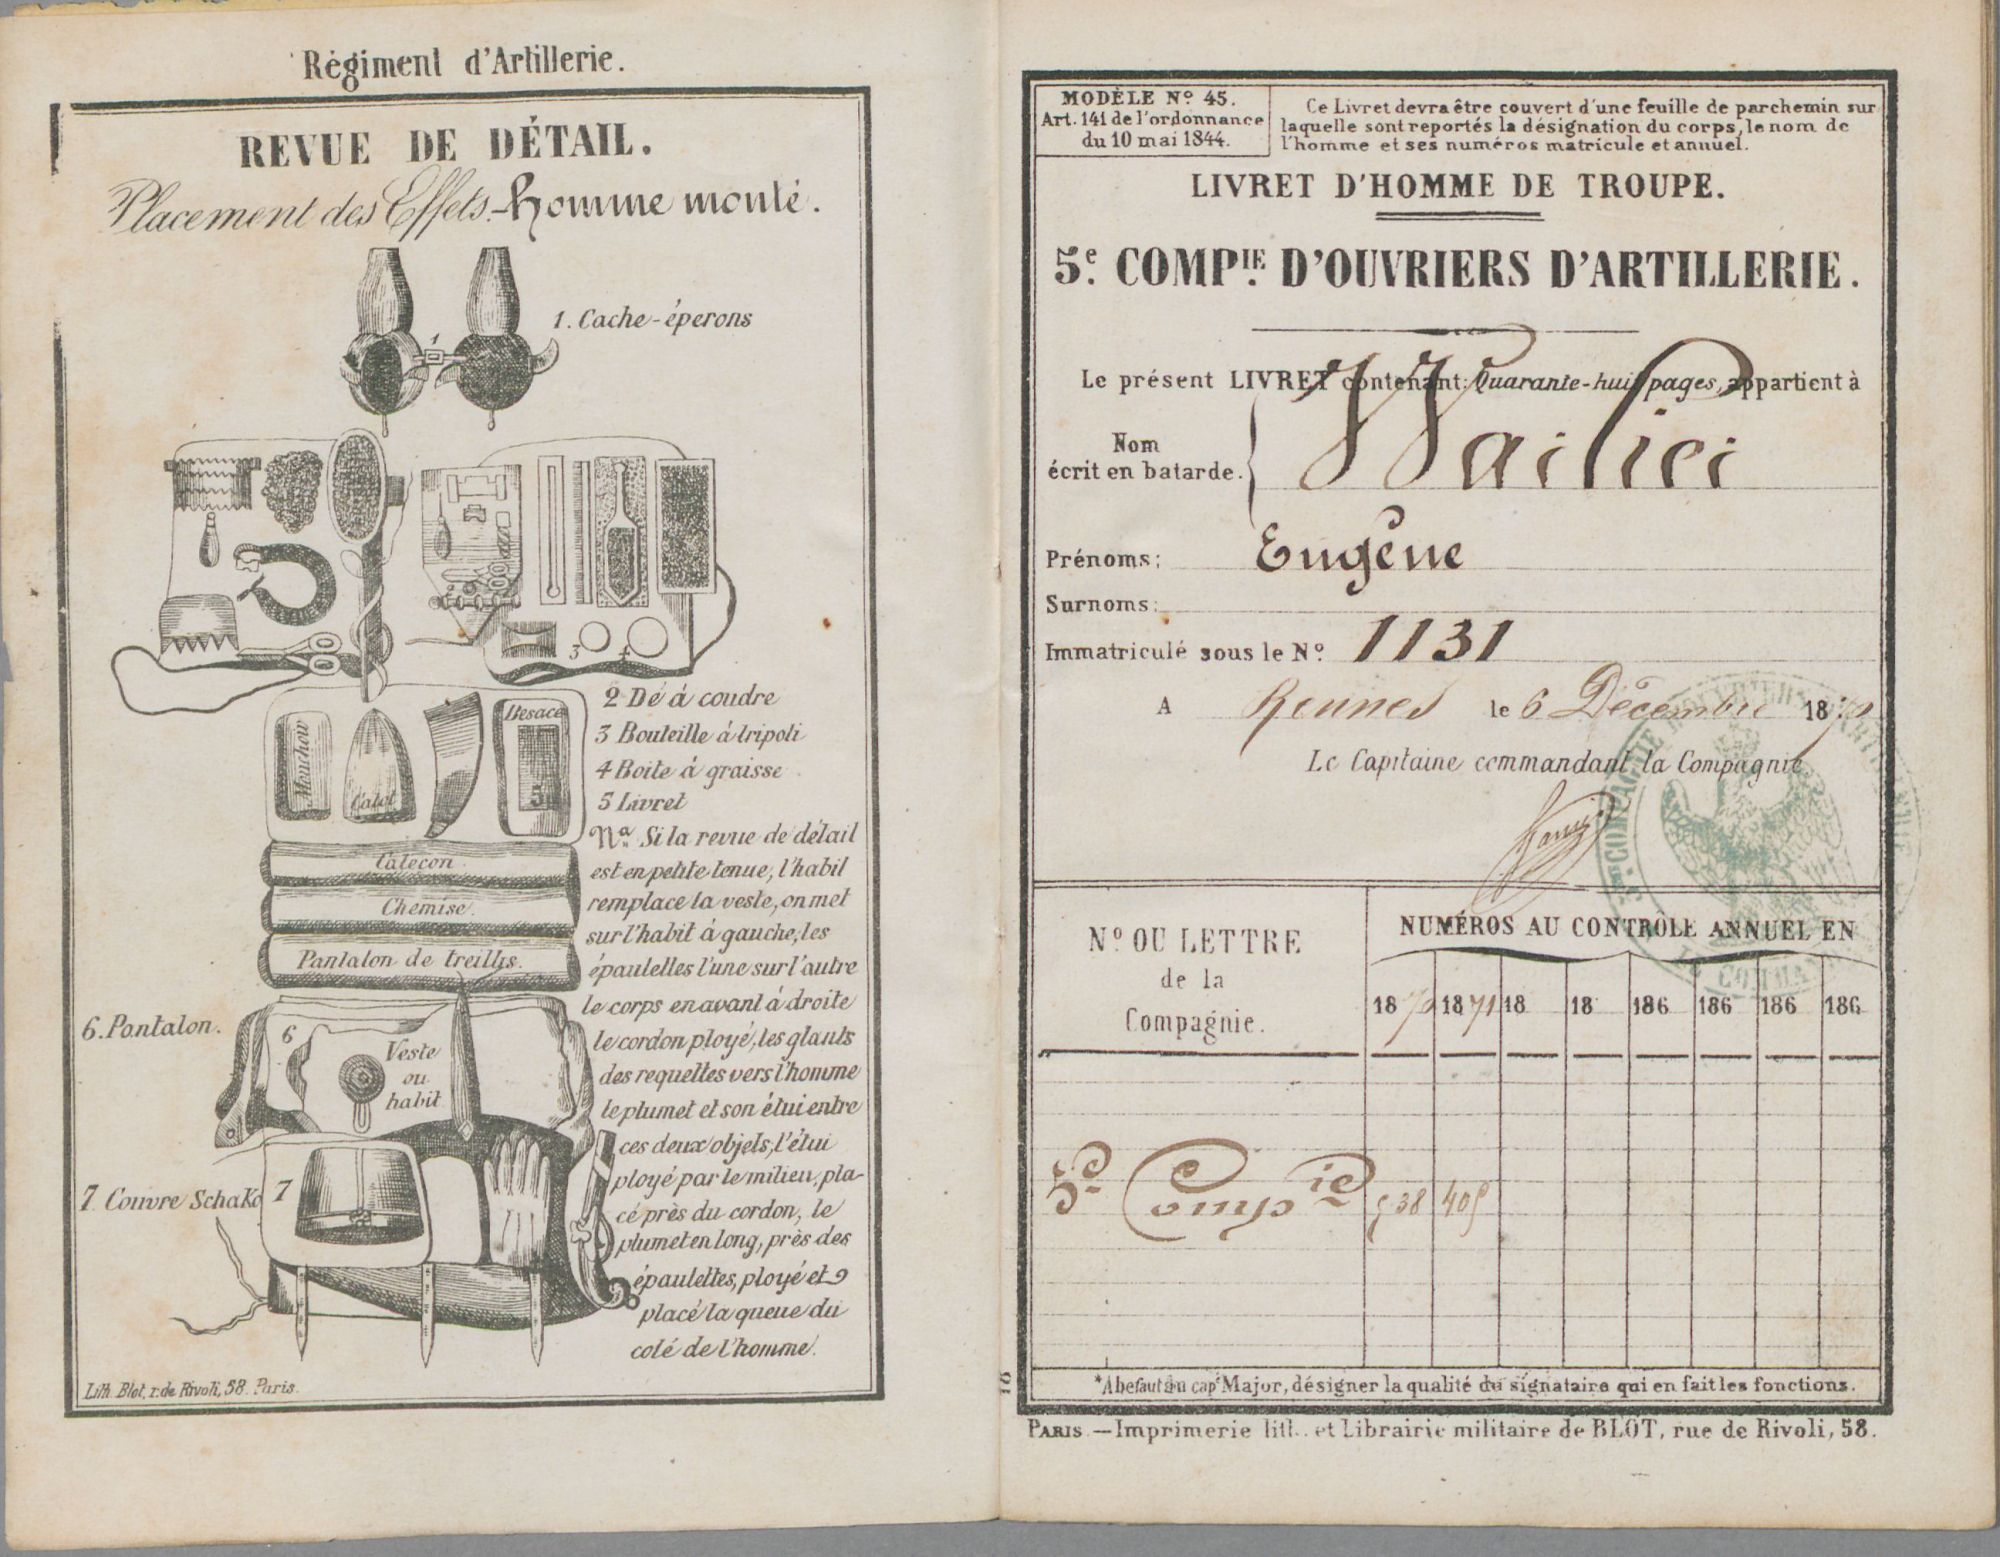 Régiment d'Artillerie.
REVUE DE DÉTAIL.
Placement des Effets.-homme monté.
1. Cache-éperons
1
3
4
2 Dé à coudre
3 Bouteille à tripoli
4 Boite à graisse
5 Livret
Mouchoir
Calot
Besace
5
Calecon
Chemise.
Pantalon de treillis.
Nª Si la revue de détail
est en petite tenue, l'habil
remplace la veste, on met
sur l'habit à gauche, les
épaulettes l'une sur l'autre
le corps en avant à droite
le cordon ployé, les glants
des requettes vers l'homme
le plumet et son étui entre
ces deux objets, l'étui
ployé par le milieu, pla-
cé près du cordon, le
plumet en long, près des
épaulettes, ployé et
placé la queue du
coté de l'homme.
6. Pantalon.
6
Veste
ou
habit
7. Couvre Schako
7
Lith. Blot, r. de Rivoli, 58. Paris.
MODÈLE Nº 45.
Art. 141 de l'ordonnance
du 10 mai 1844.
Ce Livret devra être couvert d'une feuille de parchemin sur
laquelle sont reportés la désignation du corps, le nom de
l'homme et ses numéros matricule et annuel.
LIVRET D'HOMME DE TROUPE.
5e. COMPIE. D'OUVRIERS D'ARTILLERIE.
Le présent LIVRET contenant: Quarante-huit pages, appartient à
Nom
écrit en batarde.
Prénoms: Eugène
Surnoms:
Immatriculé sous le Nº 1131
A Rennes le 6 Décembre 1870
Le Capitaine commandant la Compagnie,
Nº OU LETTRE
de la
Compagnie.
NUMÉROS AU CONTRÔLE ANNUEL EN
1870 1871 18 18 186 186 186 186
5e Compie 938 409
*A befaut du cape Major, désigner la qualité du signataire qui en fait les fonctions.
16
PARIS.—Imprimerie lith. et Librairie militaire de BLOT, rue de Rivoli, 58.